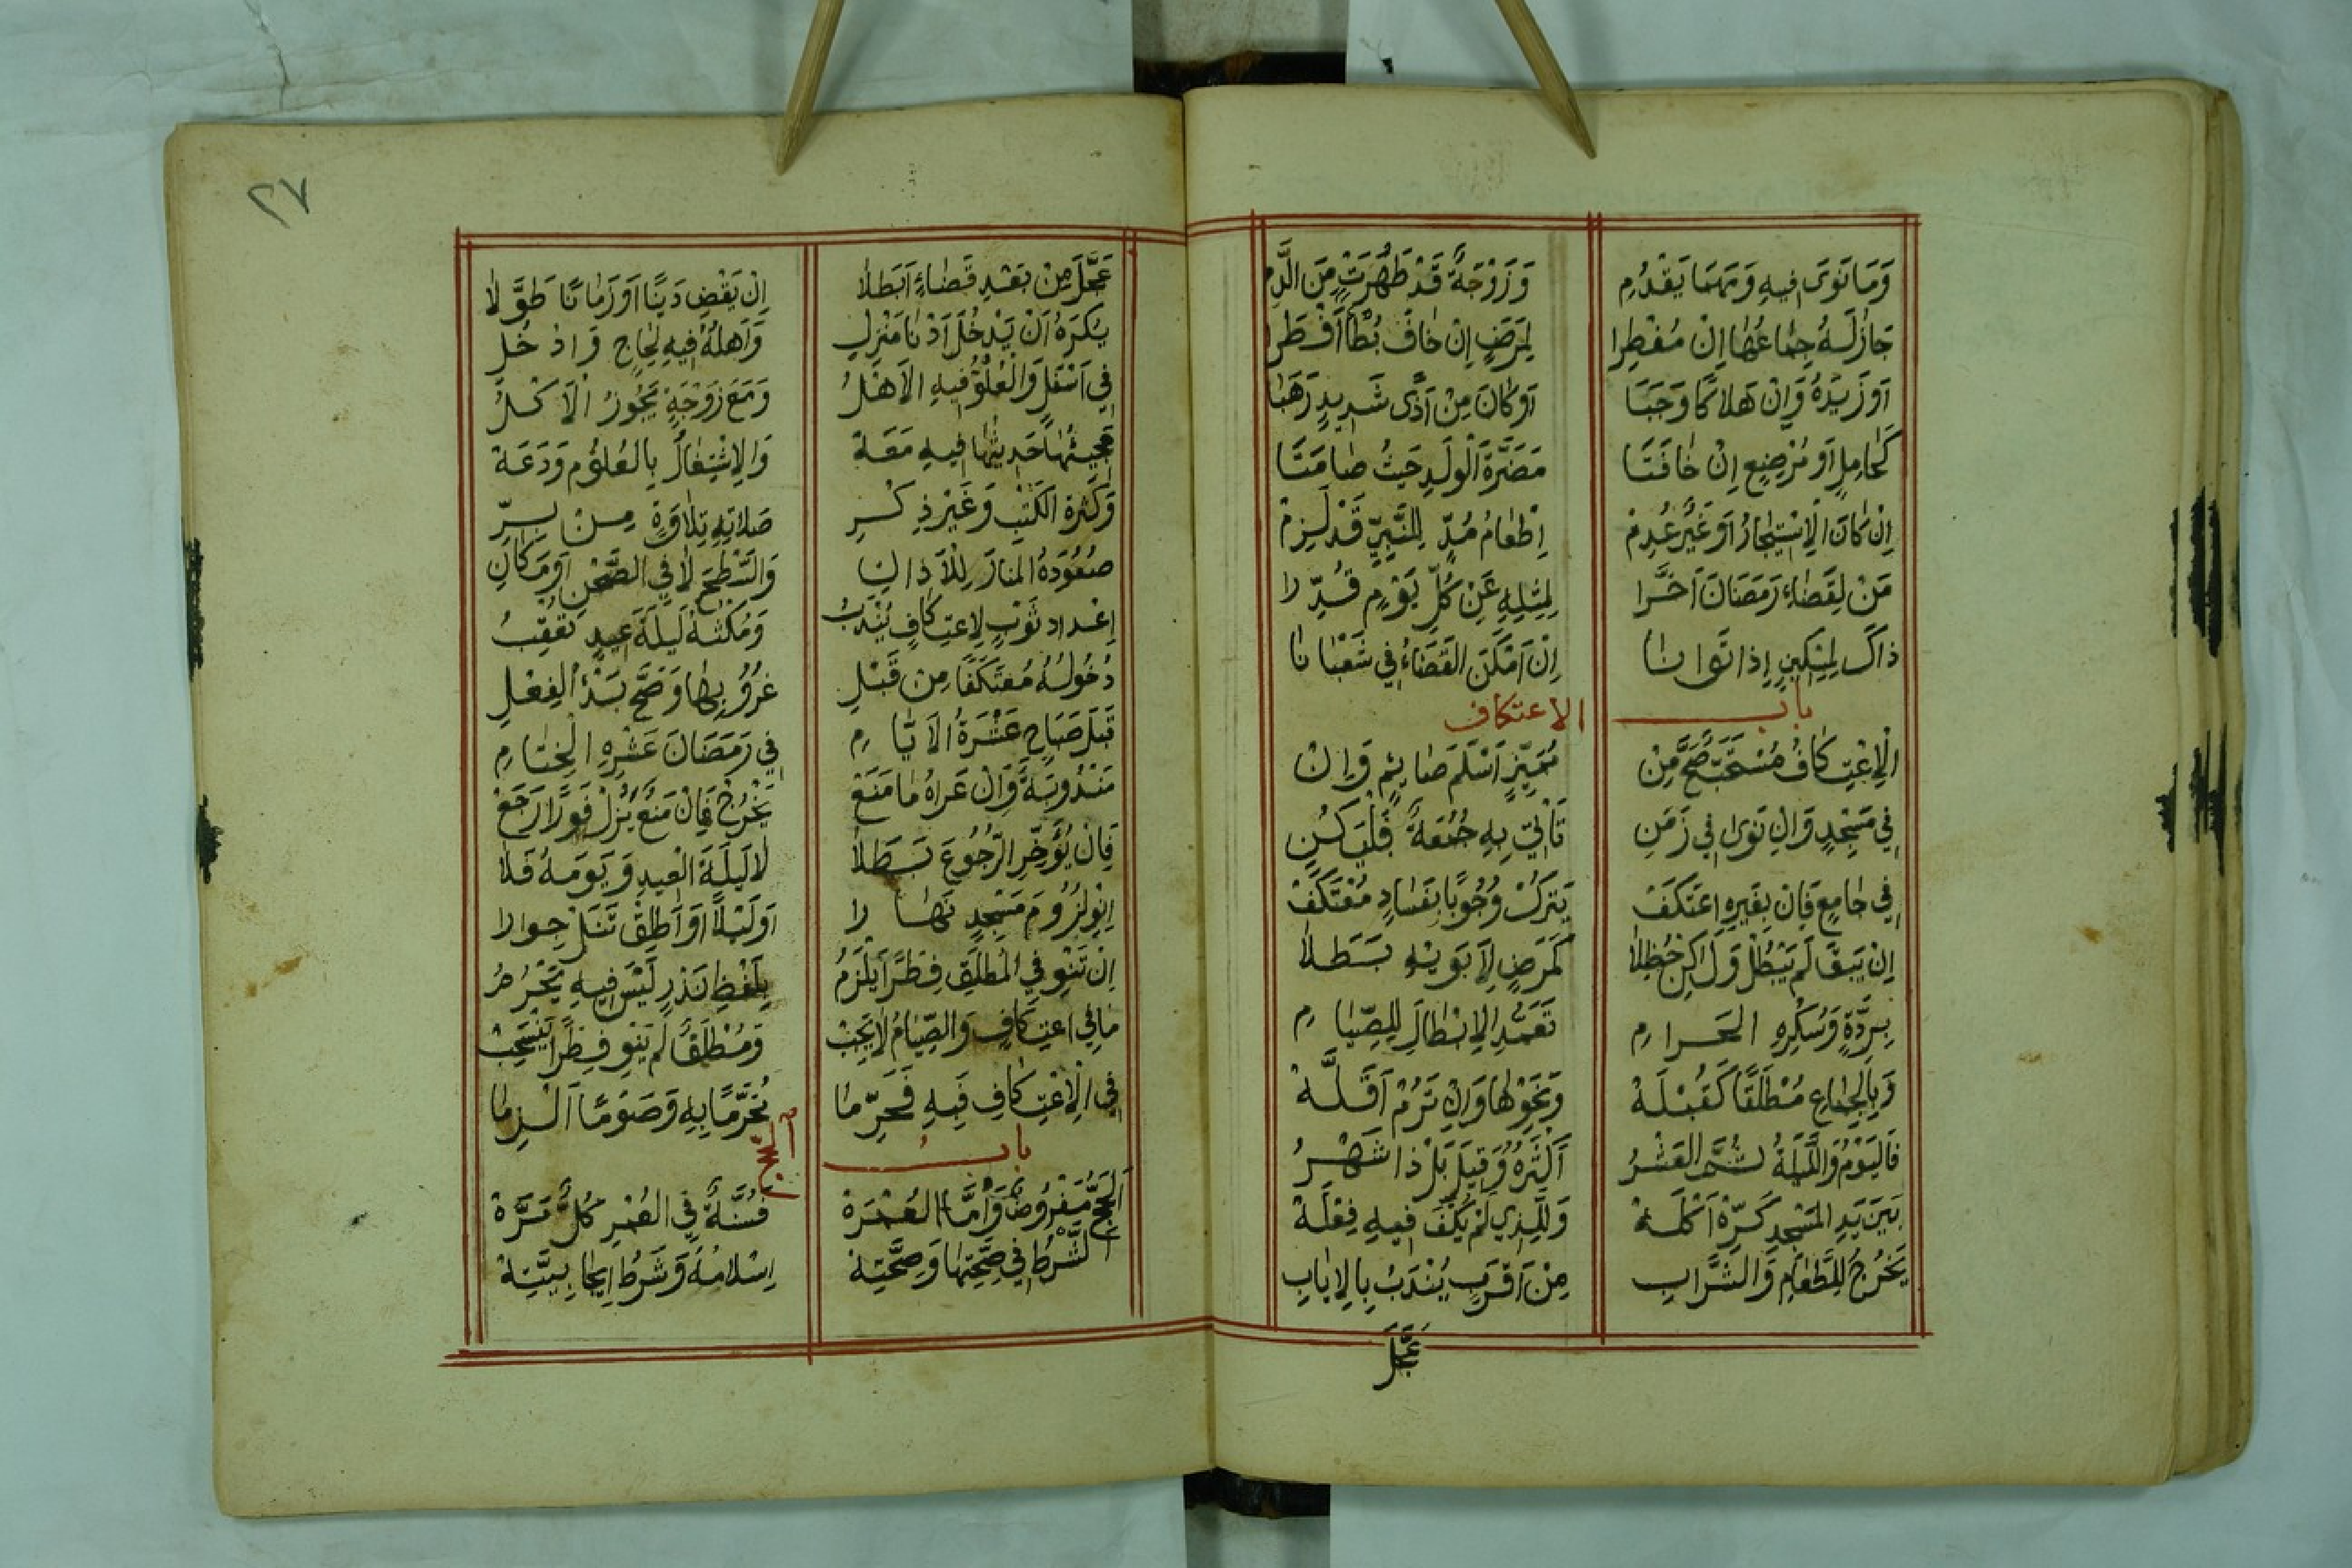 وَمَا نَوَى فِيهِ وَمَهمَا يَقْدُمِ وَزَوْجَةٌ قَدْ طَهُرَتْ مِنَ الدَّمِ
جَازَ لَهُ جِمَاعُهَا اِنْ مُفْطِرا لِمَرَضٍ اِنْ خَافَ بُطْأً أَفْطَرا
اَوْ زَيْدَهُ وَاِنْ هَلاكًا وَجَبَا اَوْ كَانَ مِنْ اَذًى شَدِيدٍ رَهَبَا
كَحَامِلٍ اَوْ مُرْضِعٍ اِنْ خَافَتَا مَضَرَّةَ الْوَلَدِ حَيْثُ صَامَتَا
اِنْ كَانَ الْاِسْتِيجَارُ اَوْ غَيْرٌ عُدِمْ اِطْعَامُ مُدٍّ لِلنَّبِيِّ قَدْ لَزِمْ
مَنْ لِقَضَاءِ رَمَضَانَ اَخَّرا لِمِثْلِهِ عَنْ كُلِّ يَوْمٍ قُدِّرا
ذَاكَ لِمِسْكِينٍ اِذَا تَوَانَا اِنْ اَمْكَنَ الْقَضَاءُ فِي شَعْبَانَا
باب الاعتكاف
الْاِعْتِكَافُ مُسْتَحَبٌّ صَحَّ مِنْ مُمَيِّزٍ اَسْلَمَ صَائِمٍ وَاِنْ
فِي مَسْجِدٍ وَاِنْ نَوَى فِي زَمَنِ تَأْتِي بِهِ جُمُعَةٌ فَلْيَكُنِ
فِي جَامِعٍ فَاِنْ بِغَيْرِهِ اعْتَكَفْ يَتْرُكْ وُجُوبًا بِفَسَادِ مُعْتَكَفْ
اِنْ يَبْقَ لَمْ يَبْطُلْ وَلَكِنْ حُظِلَا كَمَرَضٍ لِاَبَوَيْهِ بَطَلا
بِرِدَّةٍ وَسُكْرِهِ الْحَرامِ تَعَمُّدِ الْاِبْطَالِ لِلصِّيَامِ
وَبِالْجِمَاعِ مُطْلَقًا كَقُبْلَهْ وَنَحْوِهَا وَاِنْ تَرُمْ اَقَلَّهْ
فَالْيَوْمُ وَاللَّيْلَةُ ثُمَّ الْعَشْرُ اَكْثَرُهُ وَقِيلَ بَلْ ذَا شَهْرُ
بَيْنَ يَدِ الْمَسْجِدِ كَرِّهْ اَكْلَهْ وَلِلَّذِي لَمْ يُكْفَ فِيهِ فِعْلَهْ
يَخْرُجُ لِلطَّعَامِ وَالشَّرَابِ مِنْ اَقْرَبٍ يُنْدَبُ بِالْاِيَابِ
عَجَّلَ
٢٧
عَجَّلَ مِنْ بَعْدِ قَضَاءٍ اَبْطَلَا اِنْ يَقْضِ دَيْنًا اَوْ زَمَانًا طَوَّلَا
يُكْرَهُ اَنْ يَدْخُلَ اَدْنَا مَنْزِلِ وَاَهْلُهُ فِيهِ لِحَاجٍ وَادْخُلِ
فِي اَسْفَلٍ وَالْعُلْوُ فِيهِ الْاَهْلُ وَمَعَ زَوْجَةٍ يَجُوزُ الْاَكْلُ
مَجِيئُهَا حَدِيثُهَا فِيهِ مَعَهْ وَالْاِشْتِغَالُ بِالْعُلُومِ وَدَعَهْ
وَكَثْرَةُ الْكَتْبِ وَغَيْرُ ذِكْرِ صَلَاتِهِ تِلَاوَةٍ مِنْ بِرِّ
صُعُودَهُ الْمَنَارَ لِلْاَذَانِ وَالسَّطْحَ لَا فِي الصَّحْنِ اَوْ مَكَانِ
اِعْدَادُ ثَوْبٍ لِاعْتِكَافٍ يُنْدَبُ وَمُكْثُهُ لَيْلَةَ عِيدٍ تُعْقِبُ
دُخُولُهُ مُعْتَكَفًا مِنْ قَبْلِ غُرُوبِهَا وَصَحَّ بَدْءُ الْفِعْلِ
قَبْلَ صَبَاحِ عَشْرَةُ الْاَيَّامِ فِي رَمَضَانَ عَشْرِهِ الْخِتَامِ
مَنْدُوبَةٌ وَاِنْ عَرَاهُ مَا مَنَعْ يَخْرُجْ فَاِنْ مَنْعٌ يَزُلْ فَوْرًا رَجَعْ
فَاِنْ يُؤَخِّرِ الرُّجُوعَ بَطَلَا لَا لَيْلَةَ الْعِيدِ وَيَوْمَهُ فَلَا
اِنْوِ لُزُومَ مَسْجِدٍ نَهَارا اَوْ لَيْلًا اَوْ اَطْلِقْ تَنَلْ جِوارا
اِنْ تَنْوِ فِي الْمُطْلَقِ فِطْرًا يَلْزَمُ بِلَفْظِ نَذْرٍ لَيْسَ فِيهِ يَحْرُمُ
مَا فِي اعْتِكَافٍ وَالصِّيَامُ لَا يَجِبْ وَمُطْلَقًا لَمْ يَنْوِ فِطْرًا يَنْسَحِبْ
فِي الْاِعْتِكَافِ فِيهِ فَحَرِّمَا مُحَرَّمًا بِهِ وَصَوْمًا اَلْزِمَا
باب الحج
اَلْحَجُّ مَفْرُوضٌ وَاَمَّا الْعُمْرَهْ فَسُنَّةٌ فِي الْعُمْرِ كُلٌّ مَرَّهْ
الشَّرْطُ فِي صِحَّتِهَا وَصِحَّتِهْ اِسْلَامُهُ وَشَرْطُ اِيجَابِيَّتِهْ